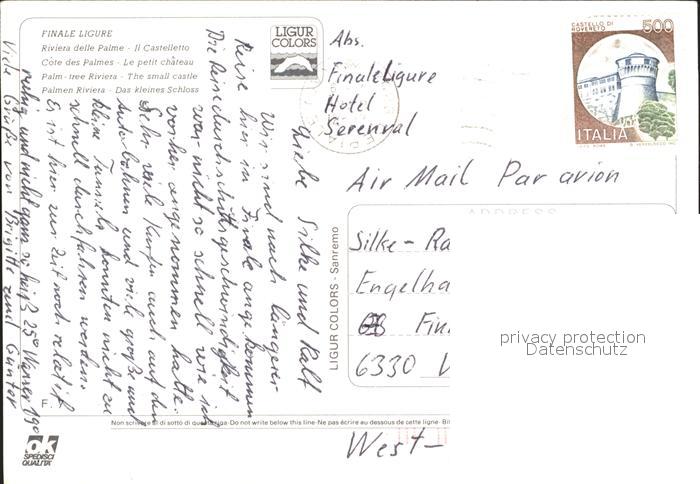 FINALE LIGURE
Riviera delle Palme - Il Castelletto
Côte des Palmes - Le petit château
Palm-tree Riviera - The small castle
Palmen Riviera - Das kleines Schloss
LIGUR
COLORS
Abs.
Finale Ligure
Hotel
Serenval
CASTELLO DI
ROVERETO
500
ITALIA
Air Mail Par avion
ADDRESS
Silke - Ra
Engelha
Fin
6330 W
West-
privacy protection
Datenschutz
LIGUR COLORS - Sanremo
Liebe Silke und Ralf
Wir sind nach längerer
Reise hier in Finale angekommen
Die Reisedurchschnittsgeschwindigkeit
war nicht so schnell wie ich
vorher angenommen hatte.
Sehr viele Kurfen auch auf den
Autobahnen und viele große und
kleine Tunnels konnten nicht zu
schnell durchfahren werden.
Es ist hier zur Zeit noch relatif
ruhig und nicht ganz so heiß 25° Wasser 19°
Viele Grüße von Brigitte und Günter
F.
Non scrivere al di sotto di questa riga - Do not write below this line - Ne pas écrire au dessous de cette ligne - Bit
ok
SPEDISCI
QUALITÀ